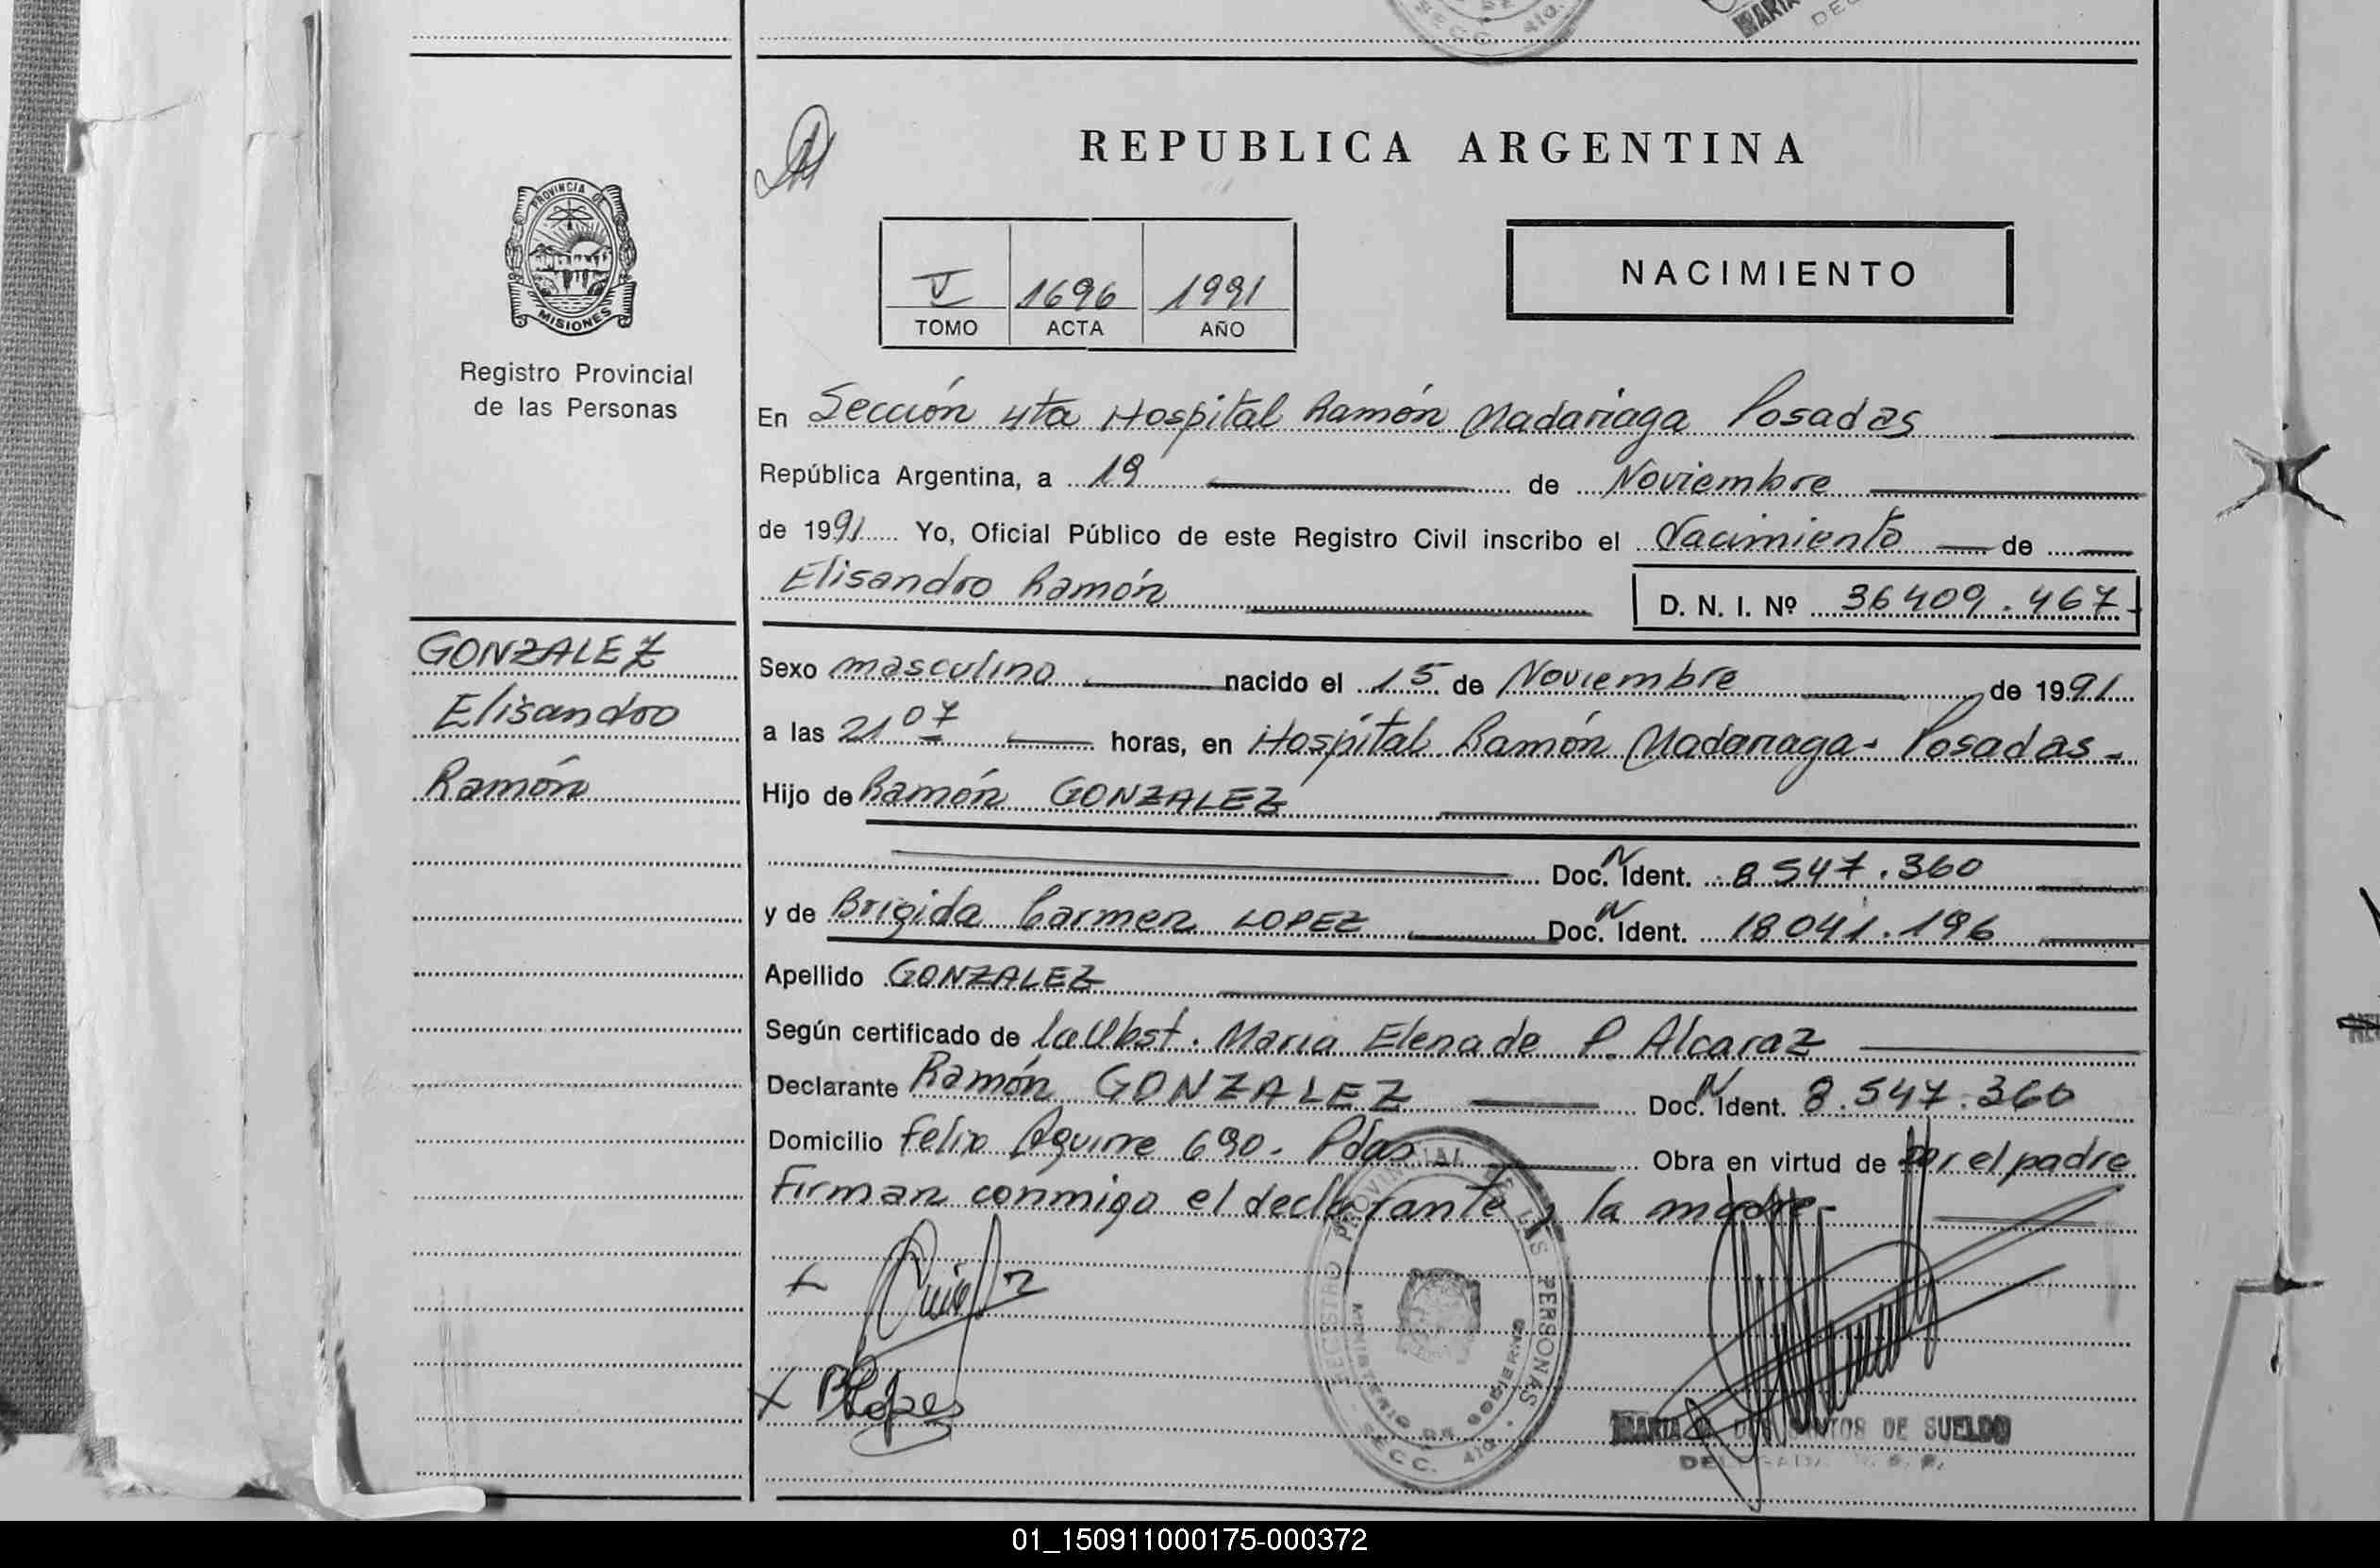 SECC. 4ta.
MARIA
REPUBLICA ARGENTINA
PROVINCIA DE
MISIONES
Registro Provincial
de las Personas
V 1696 1991
TOMO ACTA AÑO
NACIMIENTO
En Sección 4ta Hospital Ramón Madariaga Posadas
República Argentina, a 19 de Noviembre
de 1991 Yo, Oficial Público de este Registro Civil inscribo el Nacimiento de
Elisandro Ramón D. N. I. Nº 36409.467
GONZALEZ
Elisandro
Ramón
Sexo masculino nacido el 15 de Noviembre de 1991
a las 21 07 horas, en Hospital Ramón Madariaga - Posadas -
Hijo de Ramón GONZALEZ
Doc. N Ident. 8547.360
y de Brigida Carmen LOPEZ Doc. N Ident. 18041.196
Apellido GONZALEZ
Según certificado de la Obst. Maria Elena de P. Alcaraz
Declarante Ramón GONZALEZ Doc. N Ident. 8.547.360
Domicilio Felix Aguirre 690. Pdas Obra en virtud de por el padre
Firman conmigo el declarante y la madre -
BLopes
REGISTRO PROVINCIAL DE LAS PERSONAS
MINISTERIO DE GOBIERNO
SECC. 4ta.
MARIA DOS SANTOS DE SUELDO
DELEGADA
01_150911000175-000372